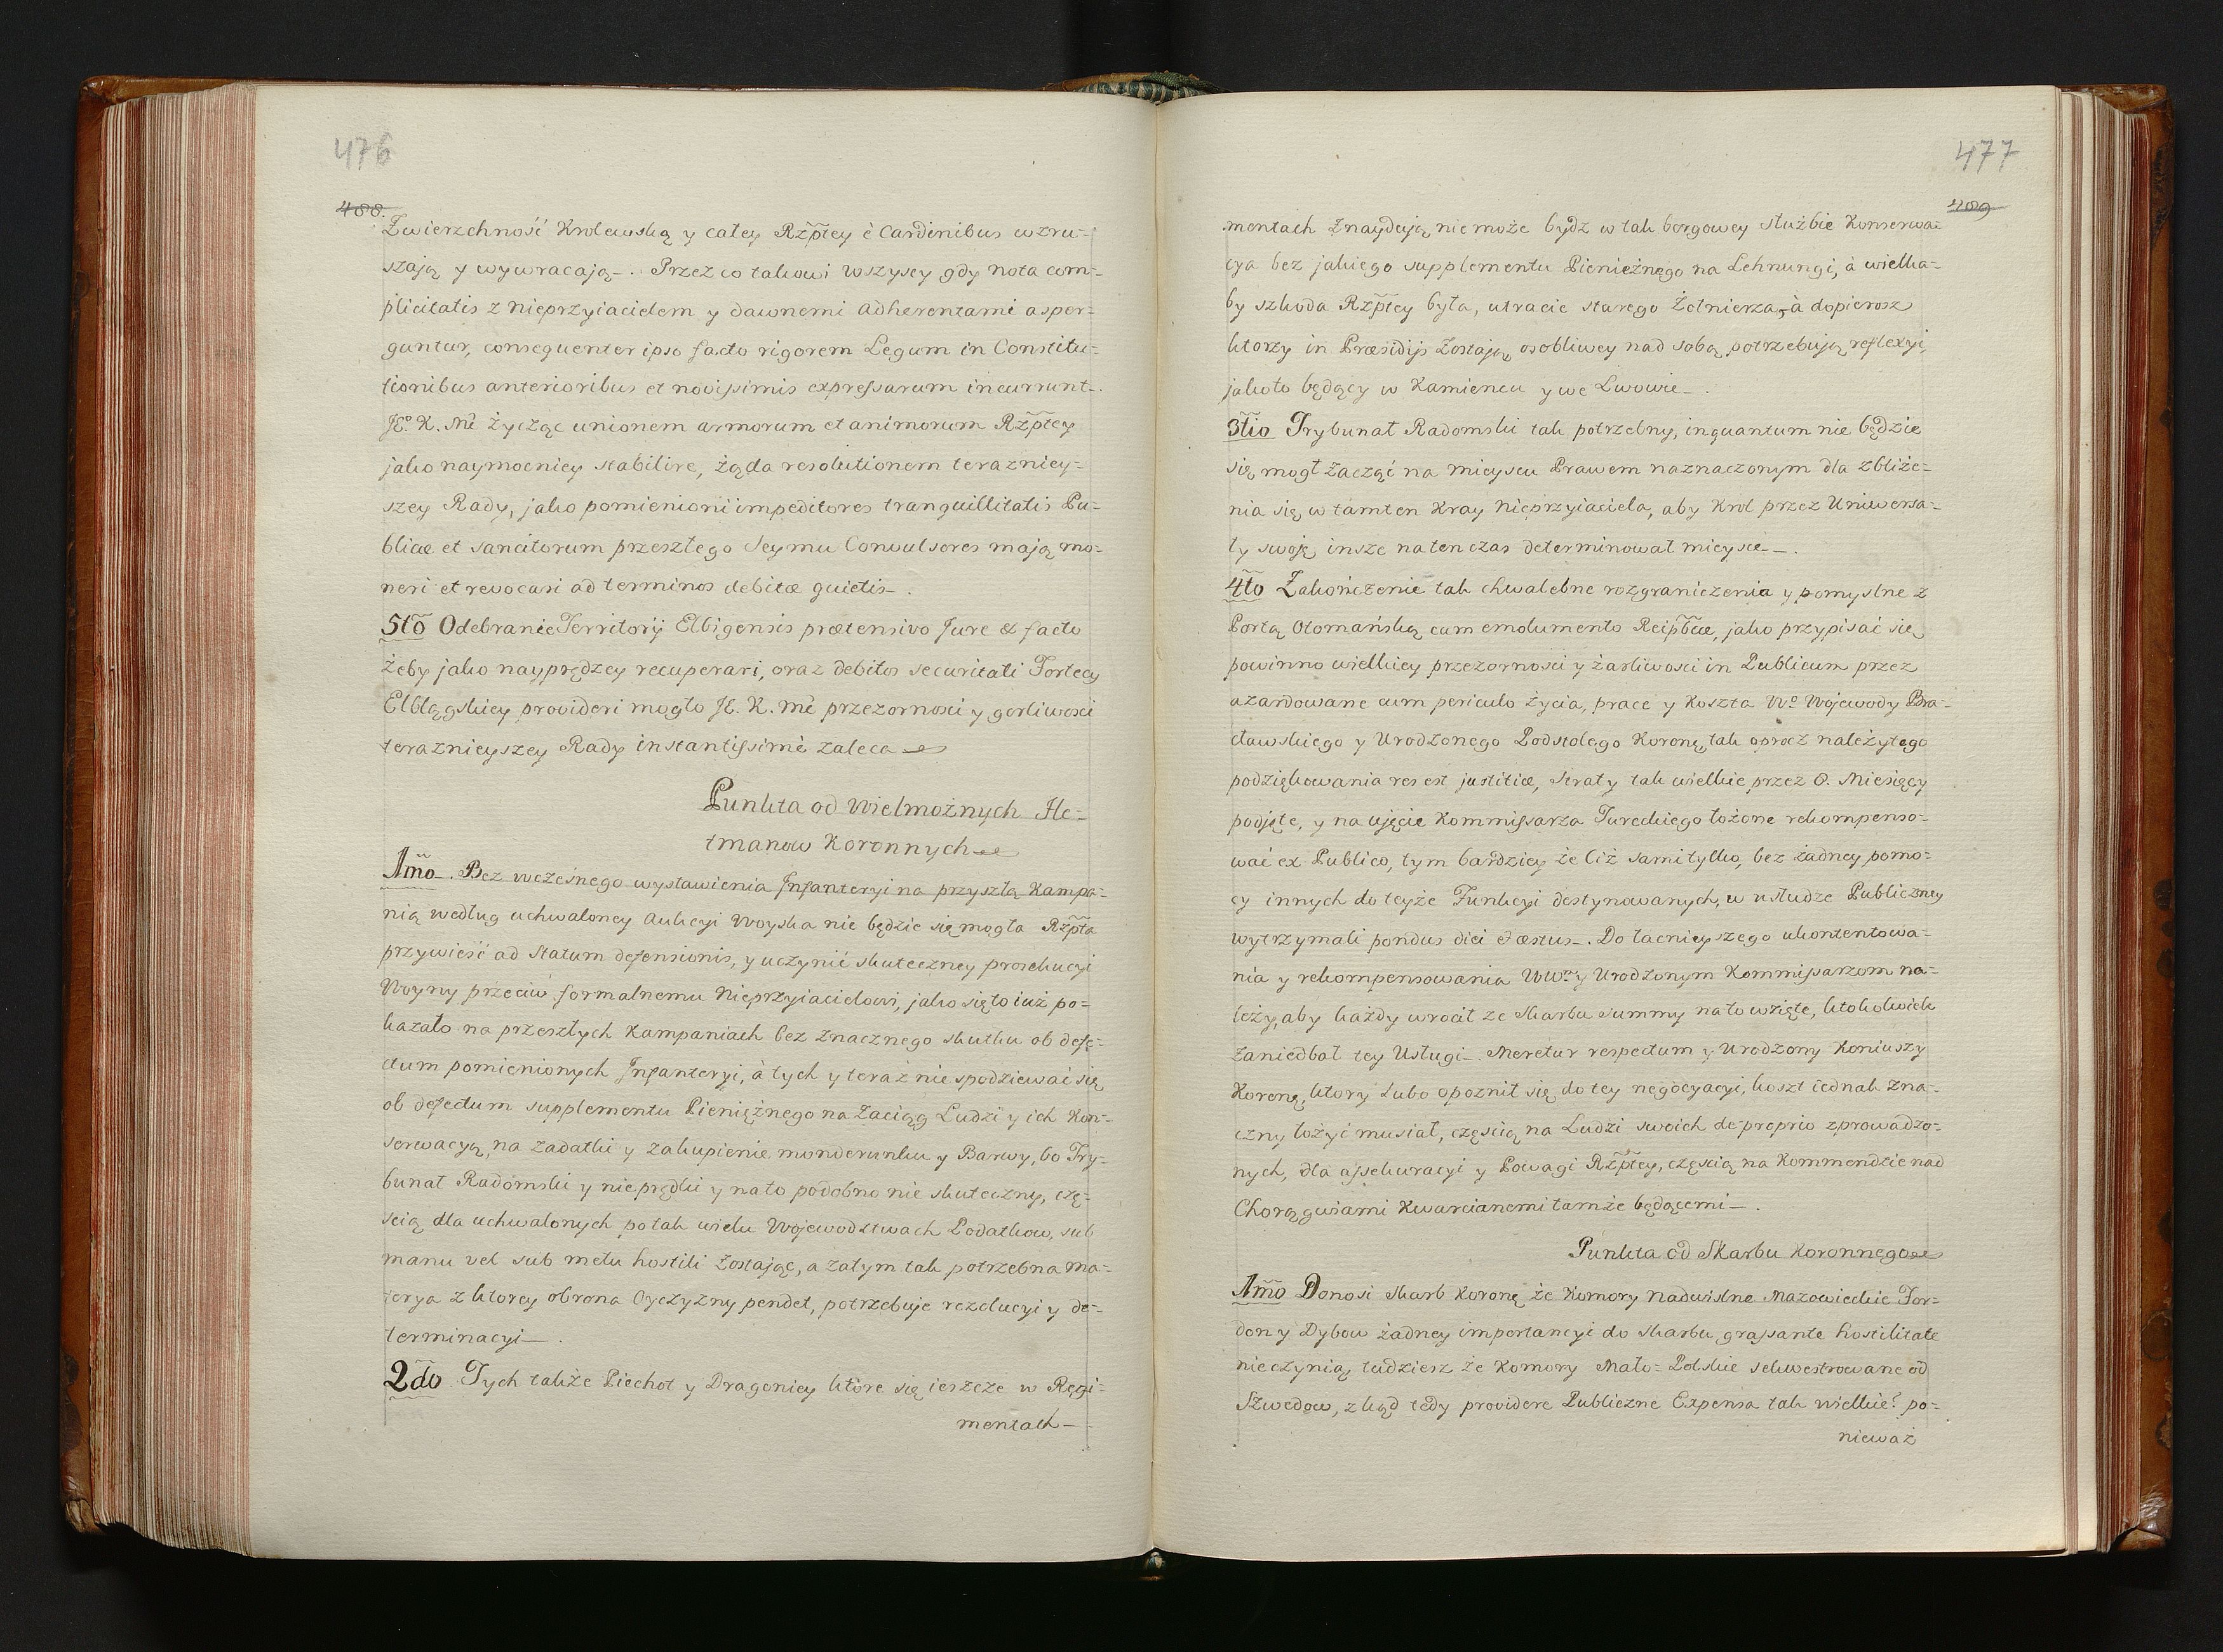 476
488.
Zwierzchność Krolewską y całey Rzptey è Cardinibus wzru-
szają y wywracają. Przez co takowi wszyscy gdy nota com-
plicitatis z Nieprzyiacielem y dawnemi adherentami asper-
guntur, consequenter ipso facto rigorem Legum in Constitu-
tionibus anterioribus et novissimis expressarum incurrunt.
JE.º K. Mć życząc unionem armorum et animorum Rzptey
jako naymocniey stabilire, żąda resolutionem terazniey-
szey Rady, jako pomienioni impeditores tranquillitatis Pu-
blicae et sancitorum przeszłego Seymu Convulsores mają mo-
neri et revocari ad terminos debitae quietis.
5to Odebranie Territorÿ Elbigensis praetensivo Jure & facto
żeby jako nayprędzey recuperari, oraz debitor securitati Fortecy
Elbląskiey provideri mogło JE. K. Mć przezorności y gorliwości
teraznieyszey Rady instantissimè zaleca
Punkta od Wielmożnych He-
tmanow Koronnych
1mo. Bez wczesnego wystawienia Infanteryi na przyszłą Kampa-
nią według uchwaloney Aukcyi Woyska nie będzie się mogła Rzpta
przywieść ad Statum defensionis, y uczynić skuteczney prosekucyi
Woyny przeciw formalnemu Nieprzyiacielowi, jako się to iuż po-
kazało na przeszłych Kampaniach bez znacznego skutku ob defe-
ctum pomienionych Infanteryi, à tych y teraz nie spodziewać się
ob defectum supplementu Pieniężnego na Zaciąg Ludzi y ich Kon-
serwacyą, na zadatki y zakupienie monderunku y Barwy, bo Try-
bunał Radomski y nieprędki y na to podobno nie skuteczny, czę-
scią dla uchwalonych po tak wielu Wojewodztwach Podatkow, sub
manu vel sub metu hostili zostając, a zatym tak potrzebna ma-
terya z ktorey obrona Oyczyzny pendet, potrzebuje rezolucyi y de-
terminacyi.
2do Tych także Piechot y Dragoniey ktore się ieszcze w Regi-
mentach
477
489
mentach Znaydują, nie może bydz w tak borgowey służbie Konserwa-
cya bez jakiego supplementu Pieniężnego na Lehnungi, à wielka-
by szkoda Rzptey była, utracić starego Żołnierza, à dopierosz
ktorzy in Praesidijs zostają, osobliwey nad sobą potrzebują reflexyi,
jakoto będący w Kamiencu y we Lwowie.
3tio Trybunał Radomski tak potrzebny, inquantum nie będzie
się mogł zacząć na mieyscu Prawem naznaczonym dla zbliże-
nia się w tamten Kray Nieprzyiaciela, aby Krol przez Uniwersa-
ły swoję insze na ten czas determinował mieysce.
4to Zakończenie tak chwalebne rozgraniczenia y pomyslne z
Portą Otomańską cum emolumento Reipbcae, jako przypisać się
powinno wielkiey przezorności y żarliwości in Publicum przez
azardowane cum periculo życia, prace y koszta Wº Wojewody Bra-
cławskiego y Urodzonego Podstolego Koronę, tak oprocz należytego
podziękowania res est justitiae, straty tak wielkie przez 8. Miesięcy
podjęte, y na ujęcie Kommissarza Tureckiego łożone rekompenso-
wać ex Publico, tym bardziey że Ciż sami tylko, bez żadney pomo-
cy innych do teyże Funkcyi destynowanych, w usłudze Publiczney
wytrzymali pondus diei & aestus. Do łacnieyszego ukontentowa-
nia y rekompensowania WW. y Urodzonym Kommissarzom na-
leży, aby każdy wrocił ze skarbu summy na to wzięte, ktokolwiek
zaniedbał tey Usługi. Meretur respectum y Urodzony Koniuszy
Koronę, ktory lubo opoznił się do tey negocyacyi, koszt iednak zna-
czny łożyć musiał, częscią na Ludzi swoich de proprio zprowadzo-
nych, dla assekuracyi y Powagi Rzptey, częscią na Kommendzie nad
Chorągwiami Kwarcianemi tamże będącemi.
Punkta od Skarbu Koronnego
1mo Donosi skarb Koronę że Komory nadwislne Mazowieckie For-
don y Dybow żadney importancyi do skarbu, grassante hostilitate
nie czynią, tudziesz że Komory Mało-Polskie sekwestrowane od
Szwedow, zkąd tedy providere Publiczne Expensa tak wielkie? po-
nieważ